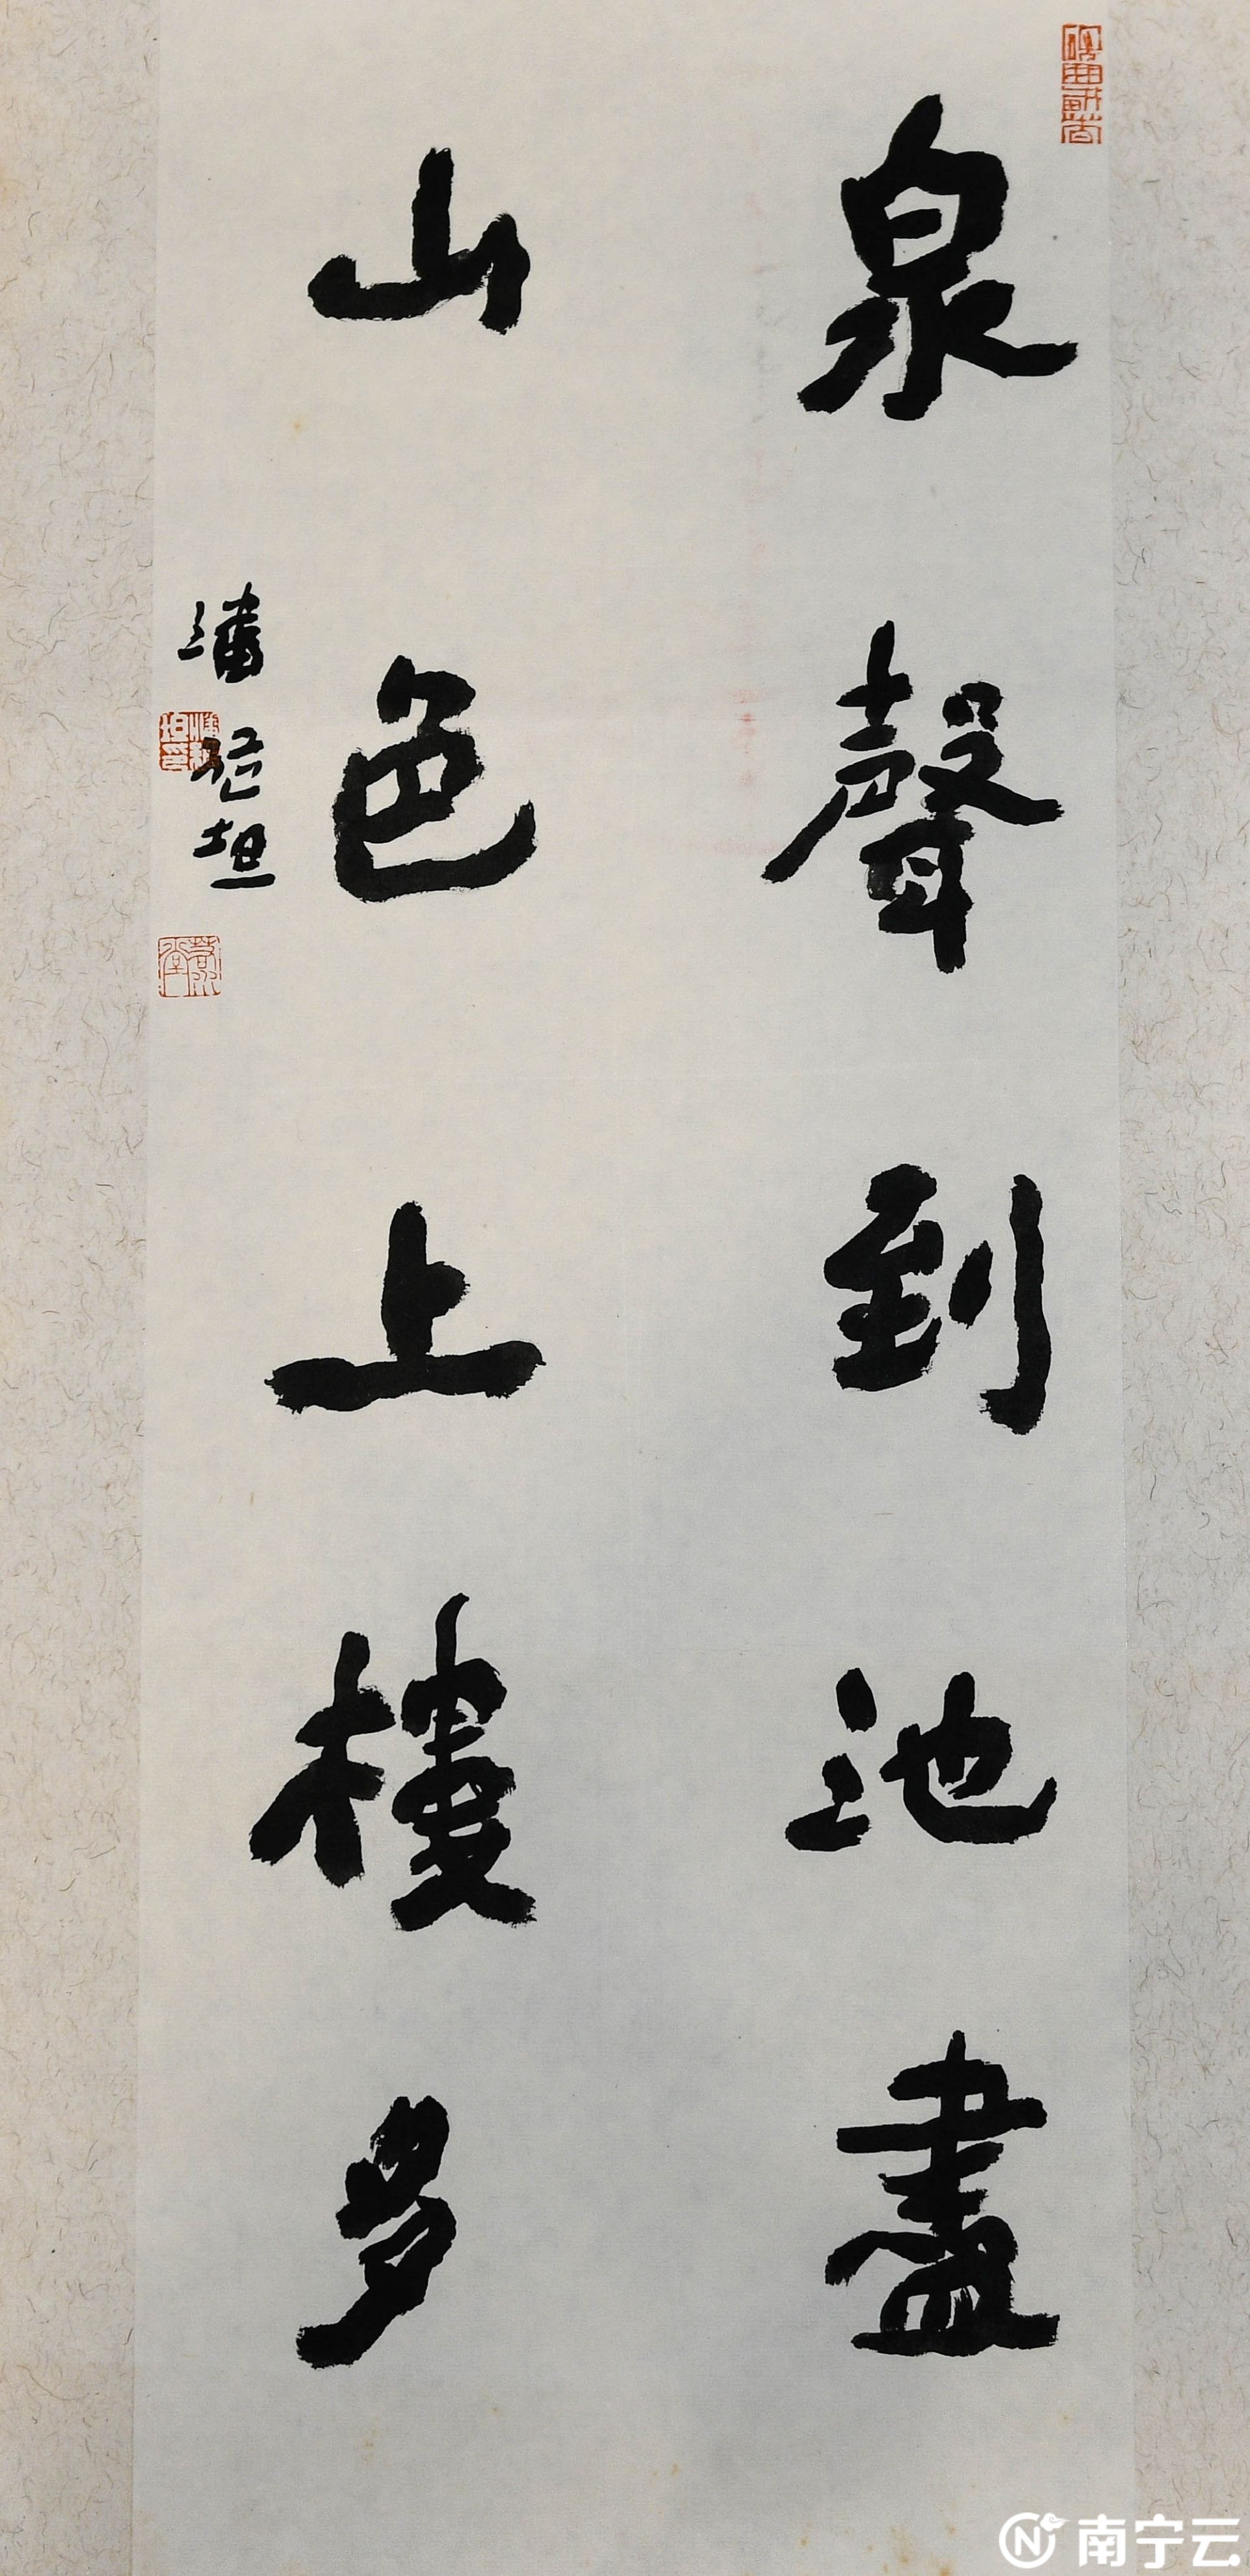 泉聲到池盡
山色上樓多
潘
坦
南宁云